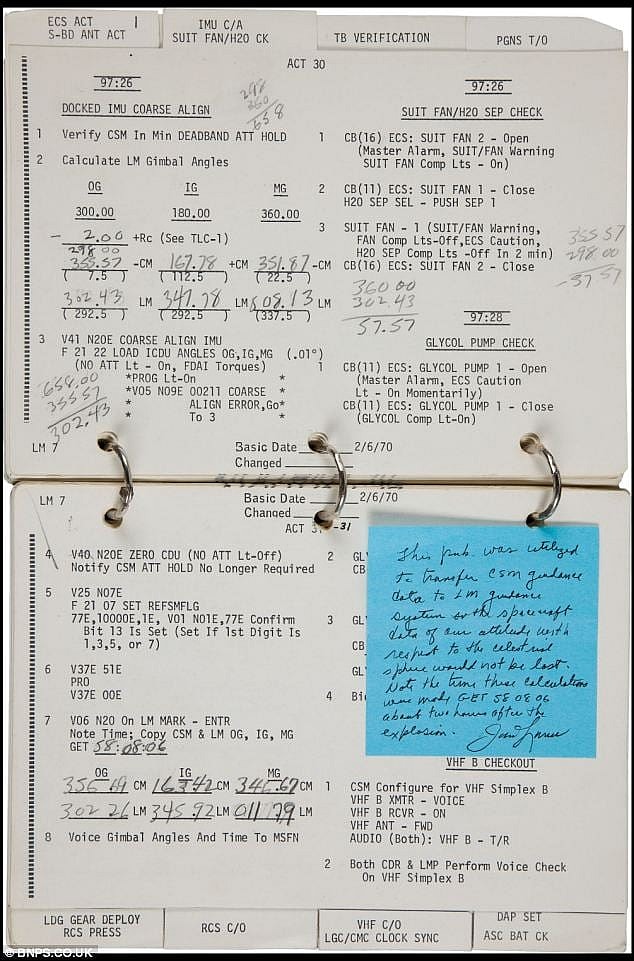 ECS ACT
S-BD ANT ACT
IMU C/A
SUIT FAN/H2O CK
TB VERIFICATION
PGNS T/O
ACT 30
97:26
DOCKED IMU COARSE ALIGN
298
360
658
1 Verify CSM In Min DEADBAND ATT HOLD
2 Calculate LM Gimbal Angles
OG IG MG
300.00 180.00 360.00
- 2.00 +Rc (See TLC-1)
298.00
355.57 -CM 167.78 +CM 351.87 -CM
( 7.5 ) ( 112.5 ) ( 22.5 )
302.43 LM 347.78 LM 608.13 LM
( 292.5 ) ( 292.5 ) (337.5 )
3 V41 N20E COARSE ALIGN IMU
F 21 22 LOAD ICDU ANGLES OG,IG,MG (.01°)
(NO ATT Lt - On, FDAI Torques)
*PROG Lt-On *
*V05 N09E 00211 COARSE *
* ALIGN ERROR,Go*
* To 3 *
658.00
355.57
302.43
LM 7
Basic Date 2/6/70
Changed
97:26
SUIT FAN/H2O SEP CHECK
1 CB(16) ECS: SUIT FAN 2 - Open
(Master Alarm, SUIT/FAN Warning
SUIT FAN Comp Lts - On)
2 CB(11) ECS: SUIT FAN 1 - Close
H2O SEP SEL - PUSH SEP 1
3 SUIT FAN - 1 (SUIT/FAN Warning,
FAN Comp Lts-Off,ECS Caution,
H2O SEP Comp Lts -Off In 2 min)
CB(16) ECS: SUIT FAN 2 - Close
355.57
298.00
-57.57
360.00
302.43
57.57
97:28
GLYCOL PUMP CHECK
1 CB(11) ECS: GLYCOL PUMP 1 - Open
(Master Alarm, ECS Caution
Lt - On Momentarily)
CB(11) ECS: GLYCOL PUMP 1 - Close
(GLYCOL Comp Lt-On)
LM 7
Basic Date 2/6/70
Changed
ACT 31
-31
4 V40 N20E ZERO CDU (NO ATT Lt-Off)
Notify CSM ATT HOLD No Longer Required
5 V25 N07E
F 21 07 SET REFSMFLG
77E,10000E,1E, V01 N01E,77E Confirm
Bit 13 Is Set (Set If 1st Digit Is
1,3,5, or 7)
6 V37E 51E
PRO
V37E 00E
7 V06 N20 On LM MARK - ENTR
Note Time; Copy CSM & LM OG, IG, MG
GET 58:08:06
OG IG MG
CM 163.42 CM 346.67 CM
302.26 LM 345.92 LM LM
8 Voice Gimbal Angles And Time To MSFN
2 GL
CB
3 GL
CB
4 Bi
This pub. was utilized
to transfer CSM guidance
data to LM guidance
system so the spacecraft
data of our attitude with
respect to the celestial
sphere would not be lost.
Note the time these calculations
were made GET 58 08 06
about two hours after the
explosion. James Lovell
VHF B CHECKOUT
1 CSM Configure for VHF Simplex B
VHF B XMTR - VOICE
VHF B RCVR - ON
VHF ANT - FWD
AUDIO (Both): VHF B - T/R
2 Both CDR & LMP Perform Voice Check
On VHF Simplex B
LDG GEAR DEPLOY
RCS PRESS
RCS C/O
VHF C/O
LGC/CMC CLOCK SYNC
DAP SET
ASC BAT CK
© BNPS.CO.UK